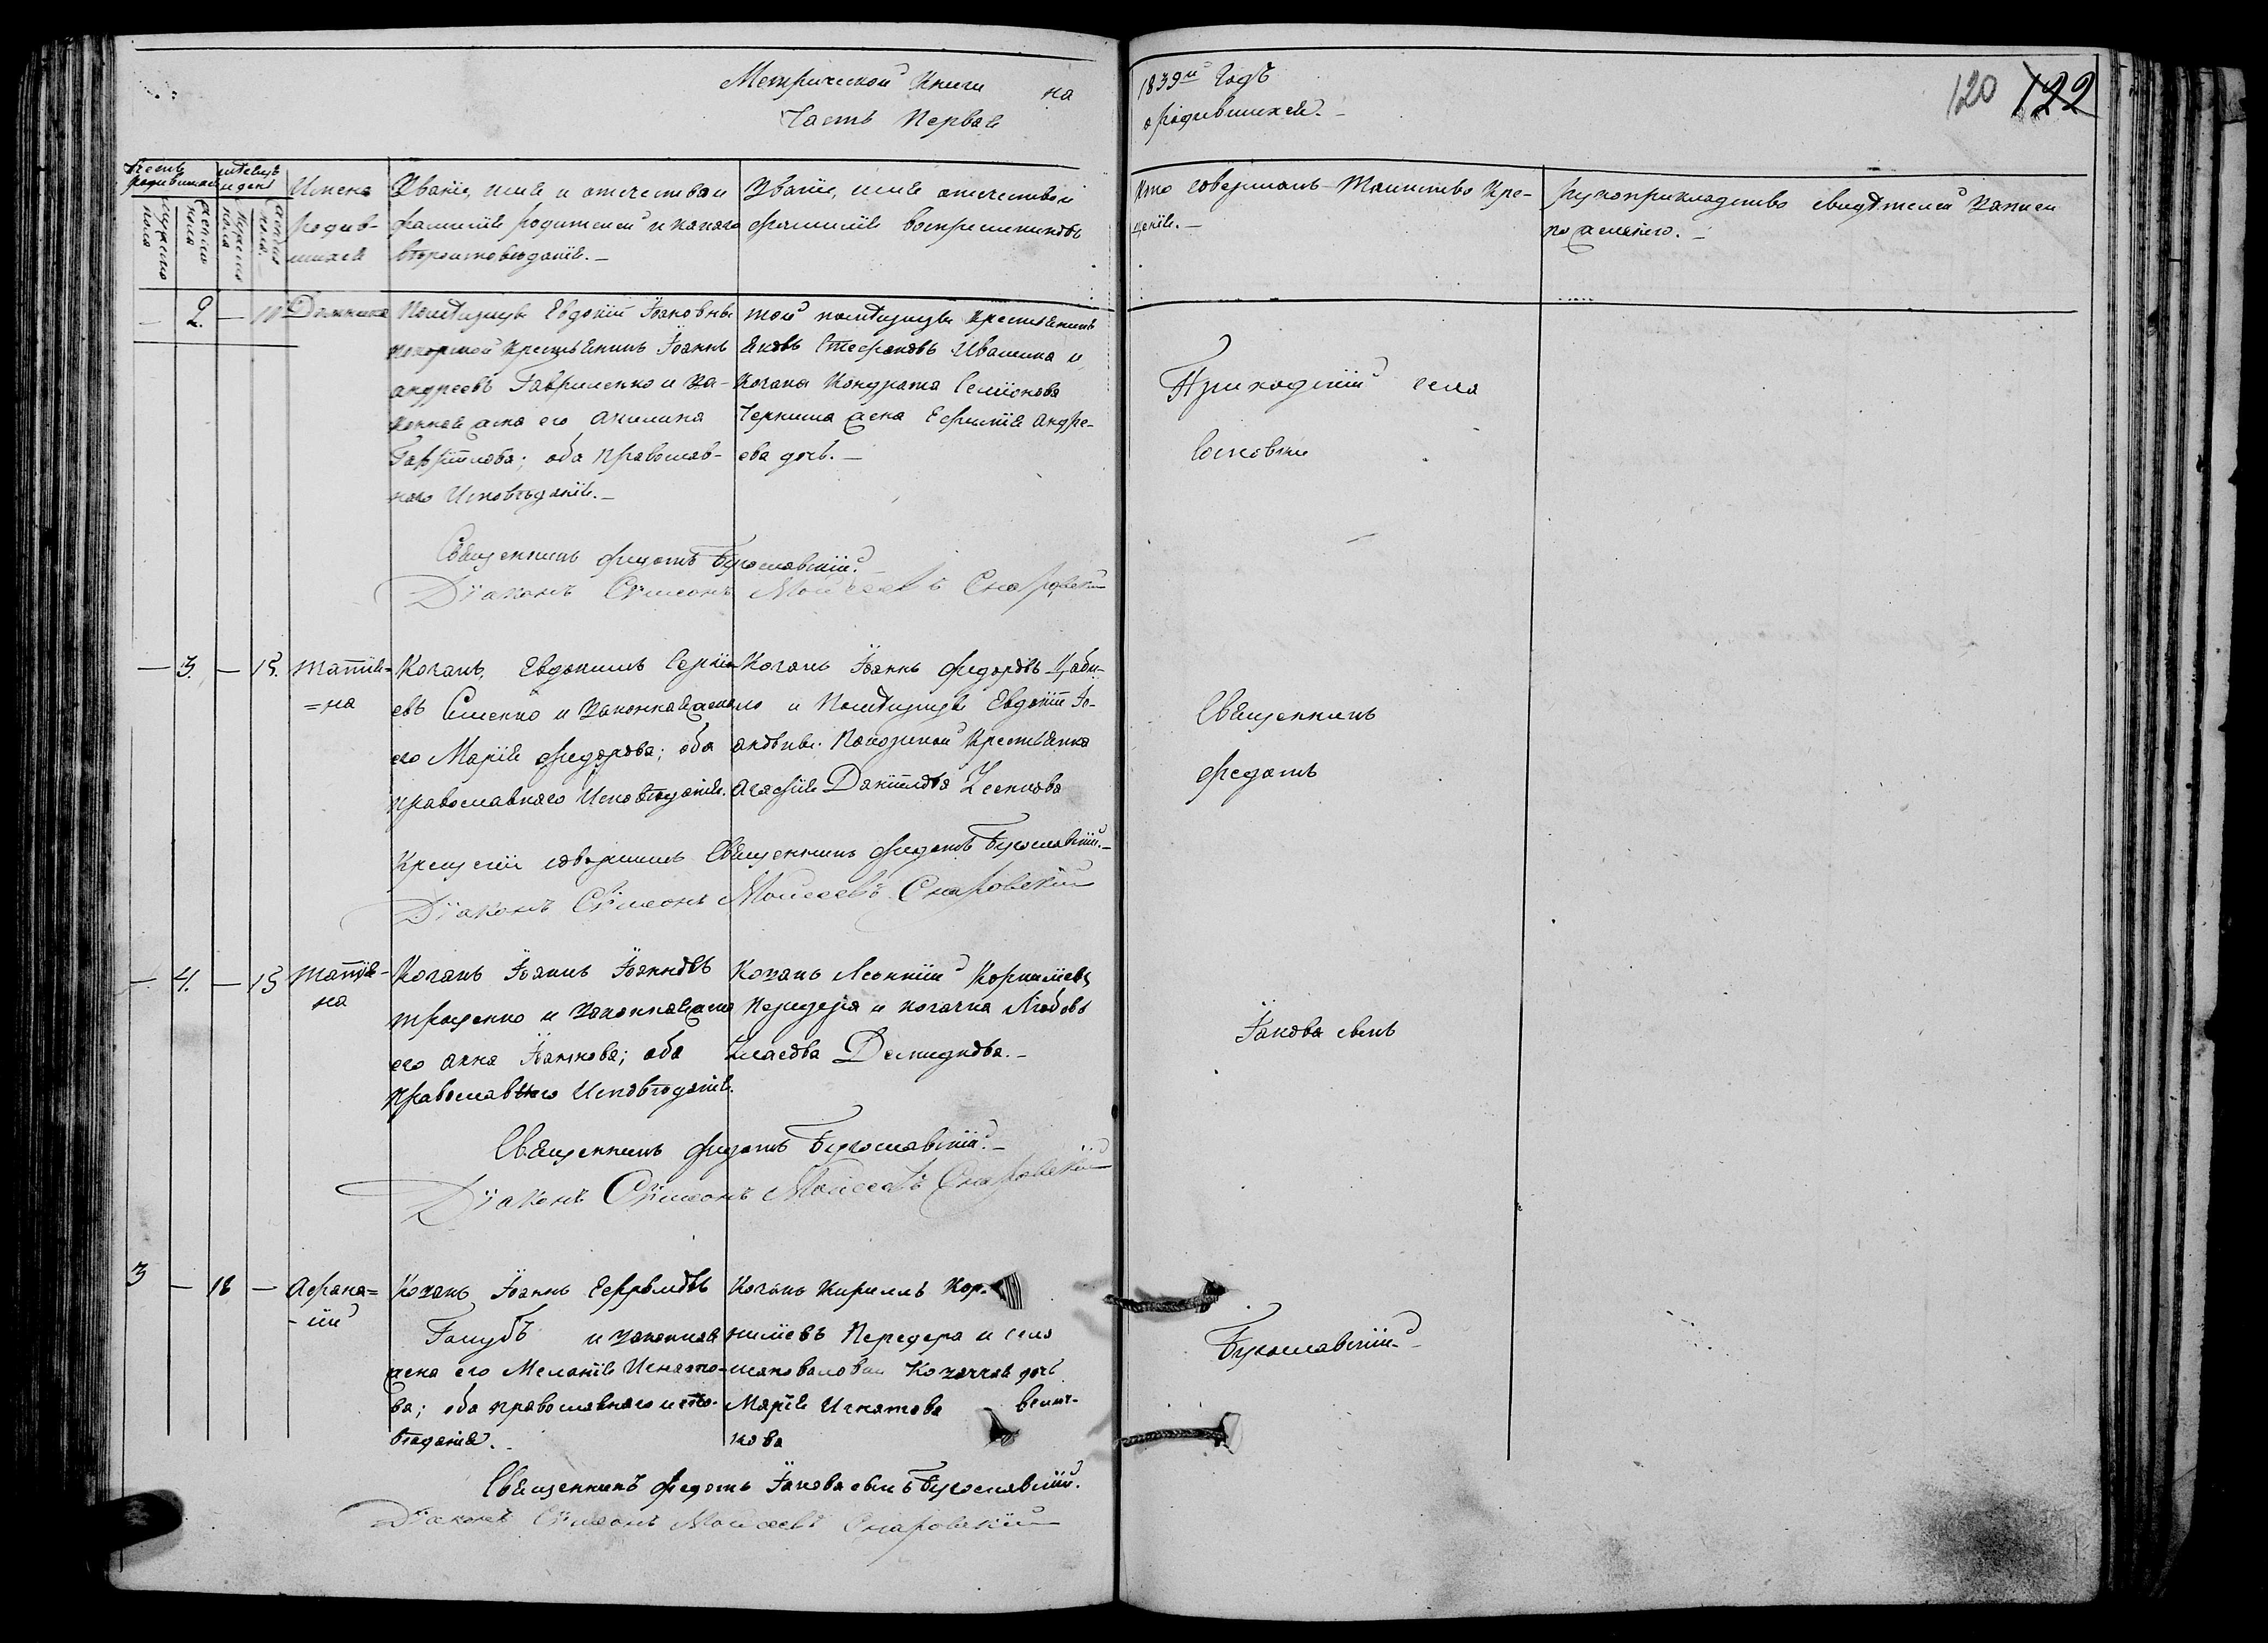 Метрической Книги на
Часть Первая
1839й Годъ
о родившихся.
120 122
Имена
родив-
шихся
Званіе, имя и отечество и
фамилія родителей и какого
вѣроисповѣданія.
Званіе, имя отечество и
фамилія воспріемниковъ
Кто совершалъ Таинство Кре-
щенія.
Рукоприкладство свидѣтелей записи
по желанію.
2. Домника
Помѣщицы Евдокіи Іоановны
крестьянинъ Іоаннъ
Андреевъ Гавриленко и за-
конная жена его Акилина
Гавріилова; оба православ-
наго Исповѣданія.
той помѣщицы Крестьянинъ
Яковъ Стефановъ Ивашина и
Козака Кондрата Семіонова
Черныша жена Евфимія Андре-
ева дочь.
Приходскій села
Священникъ Федотъ Бугославскій.
Діаконъ Сѵмеонъ Моисеевъ Снаровскій
3. 15. Татія-
на
Козакъ, Евдокимъ Сергіи-
евъ Семенко и законная жена
его Марія Федорова; оба
православнаго Исповѣданія.
Козакъ Іоаннъ Федоровъ
и Помѣщицы Евдокіи Іо-
Крестьянка
Агафія Даніилова
Священникъ
Федотъ
Крещеніе совершилъ Священникъ Федотъ Бугославскій.
Діаконъ Сѵмеонъ Моисеевъ Снаровскій
4. 15 Татія-
на
Козакъ Іоаннъ Іоанновъ
Троценко и законная жена
его Анна Іоаннова; оба
православнаго Исповѣданія.
Козакъ Леонтій Корниліевъ
Передеря и козачка Любовь
Власова Демидкова.
Іакова сынъ
Священникъ Федотъ Бугославскій.
Діаконъ Сѵмеонъ Моисеевъ Снаровскій
3 18 Афана-
сій
Козакъ Іоаннъ Ефремовъ
Голубъ и законная
жена его Меланія Игнато-
ва; оба православнаго испо-
вѣданія.
Козакъ Кириллъ Кор-
ниліевъ Передера и села
Козачка дочь
Марія Игнатова Велич-
кова
Бугославскій.
Священникъ Федотъ Іакова сынъ Бугославскій.
Діаконъ Сѵмеонъ Моисеевъ Снаровскій